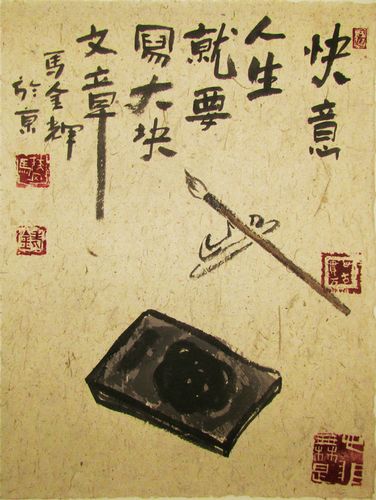 快意
人生
就要
寫大块
文章
馬金輝
於京